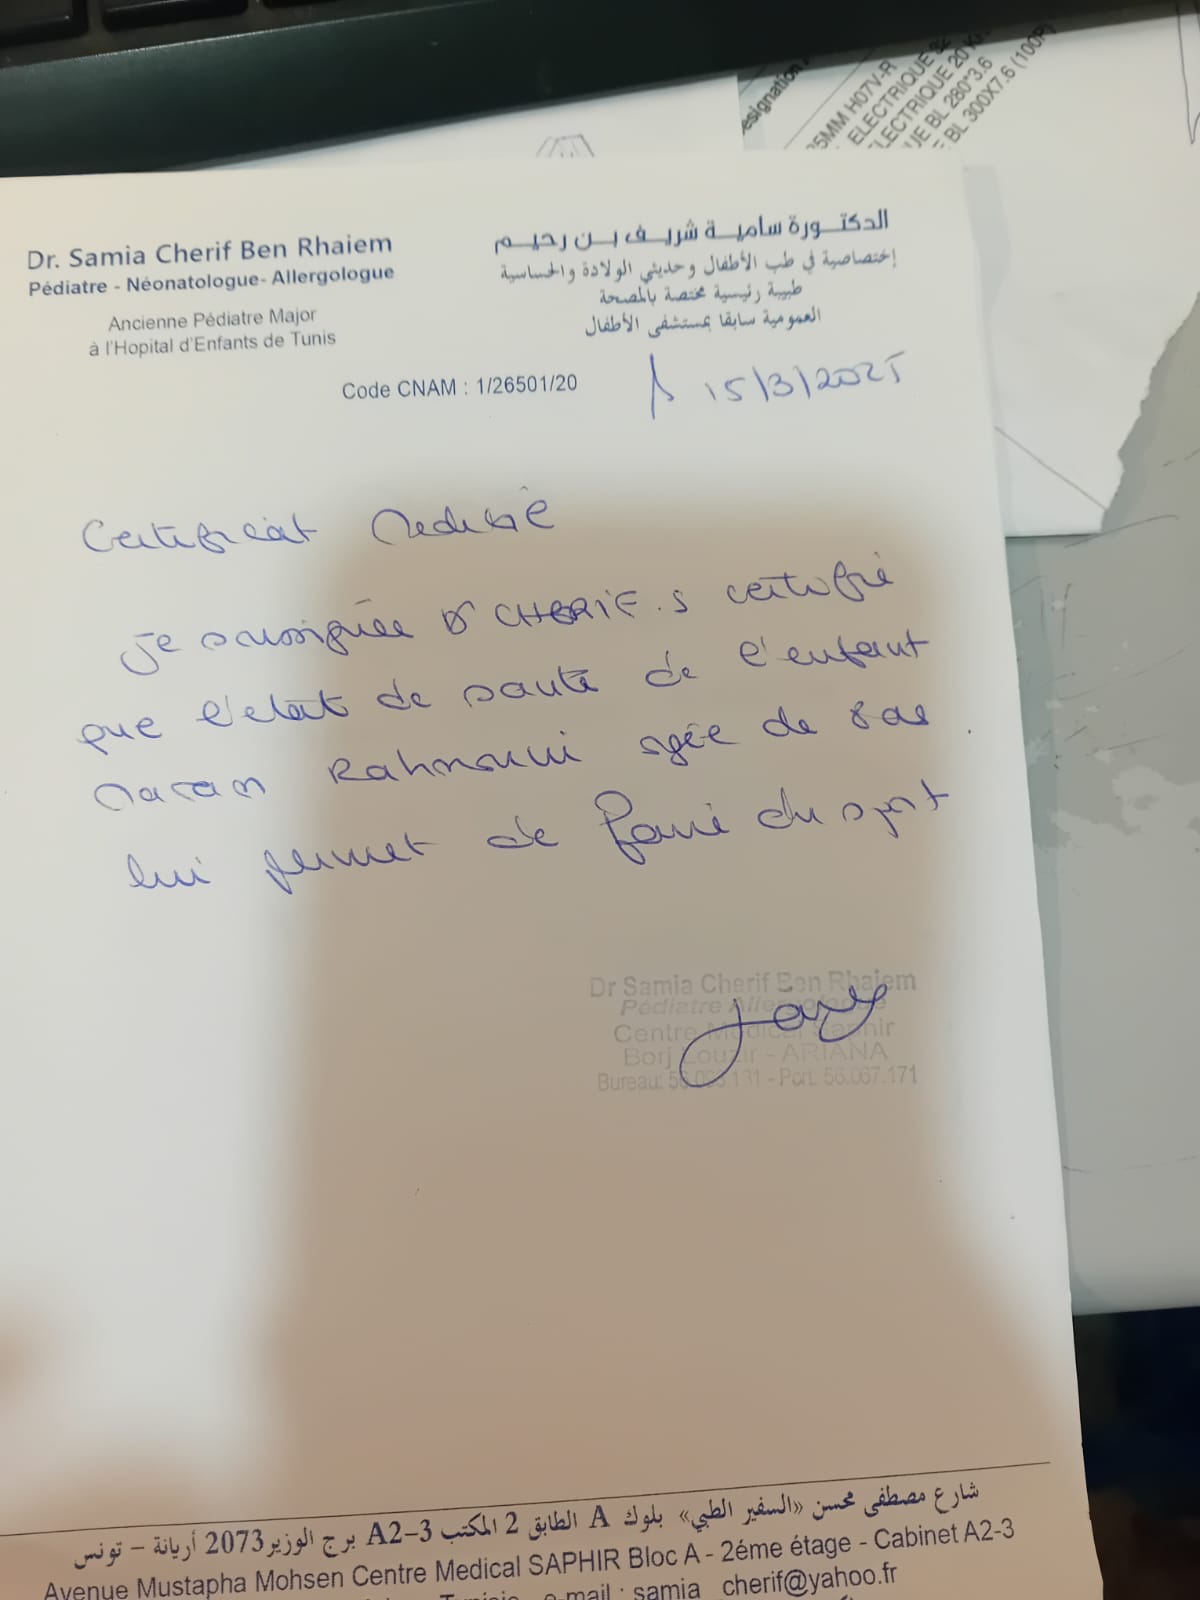 esignation
05MM H07V-R
ELECTRIQUE
ELECTRIQUE 20
UE BL 280*3.6
E BL 300X7.6 (100P)
Dr. Samia Cherif Ben Rhaiem
Pédiatre - Néonatologue- Allergologue
Ancienne Pédiatre Major
à l'Hopital d'Enfants de Tunis
الدكتورة سامية شريف بن رحيم
إختصاصية في طب الأطفال وحديثي الولادة والحساسية
طبيبة رئيسية مختصة بالمصحة
العمومية سابقا بمستشفى الأطفال
Code CNAM : 1/26501/20
15/3/2025
Certificat Médical
Je soussignée Dr CHERIF.S certifie
que l'état de santé de l'enfant
Maram Rahmouni agée de 8 as
lui permet de faire du sport
Dr Samia Cherif Ben Rhaiem
Pédiatre Allergologue
Centre Médical Saphir
Borj Louzir - ARIANA
Bureau: - Port: 56.067.171
شارع مصطفى محسن «السفير الطبي» بلوك A الطابق 2 المكتب A2-3 برج الوزير 2073 أريانة - تونس
Avenue Mustapha Mohsen Centre Medical SAPHIR Bloc A - 2éme étage - Cabinet A2-3
e-mail : samia_cherif@yahoo.fr